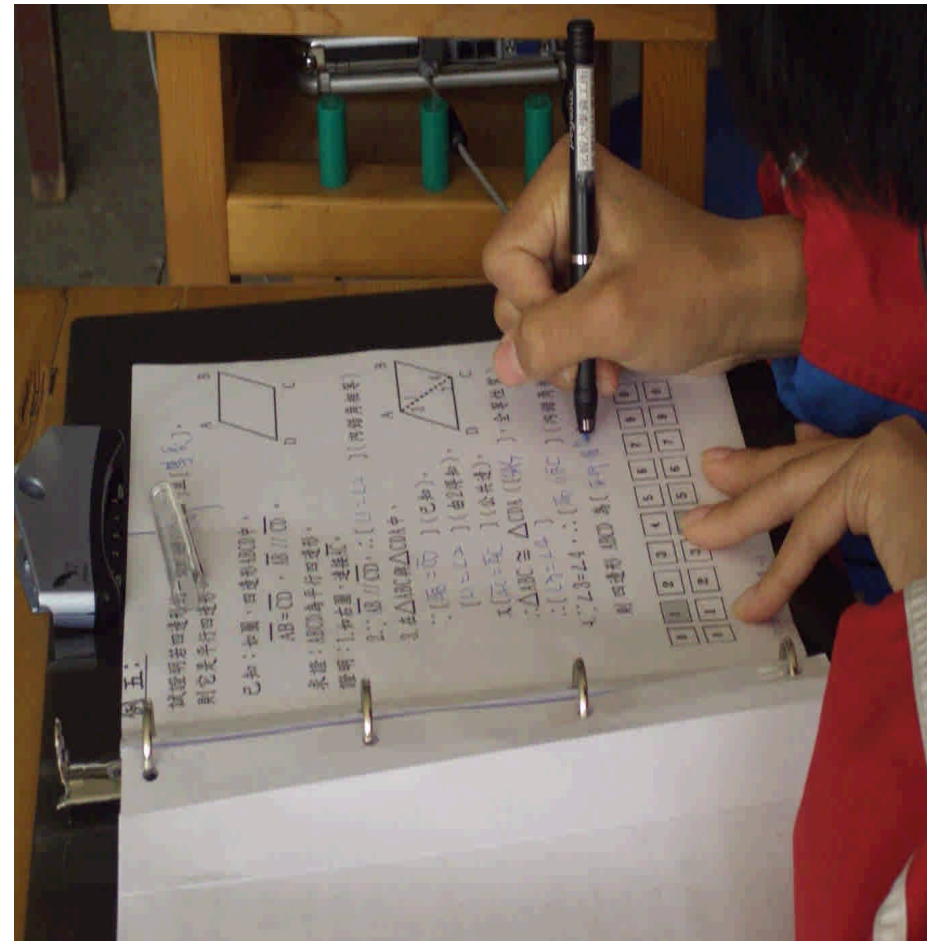 例五：
試證明若四邊形的一
則它是平行四邊形
已知：如圖，四邊形ABCD中，
AB=CD，AB//CD。
A B
D C
求證：ABCD為平行四邊形。
證明：1.如右圖，連接AC。
2.∵AB//CD，∴[∠1=∠2](內錯角相等)
3.在△ABC與△CDA中，
∵[AB=CD](已知)，
[∠1=∠2](由2得知)，
又[AC=AC](公共邊)，
∴△ABC≅△CDA([SAS])全等性質
∴[∠3=∠4]
A B
D C
4.∵∠3=∠4，∴[AD//BC](內錯角相
則四邊形ABCD為[平行四
0 1 2 3 4 5 6 7 8 9
0 1 2 3 5 6 7 8 9